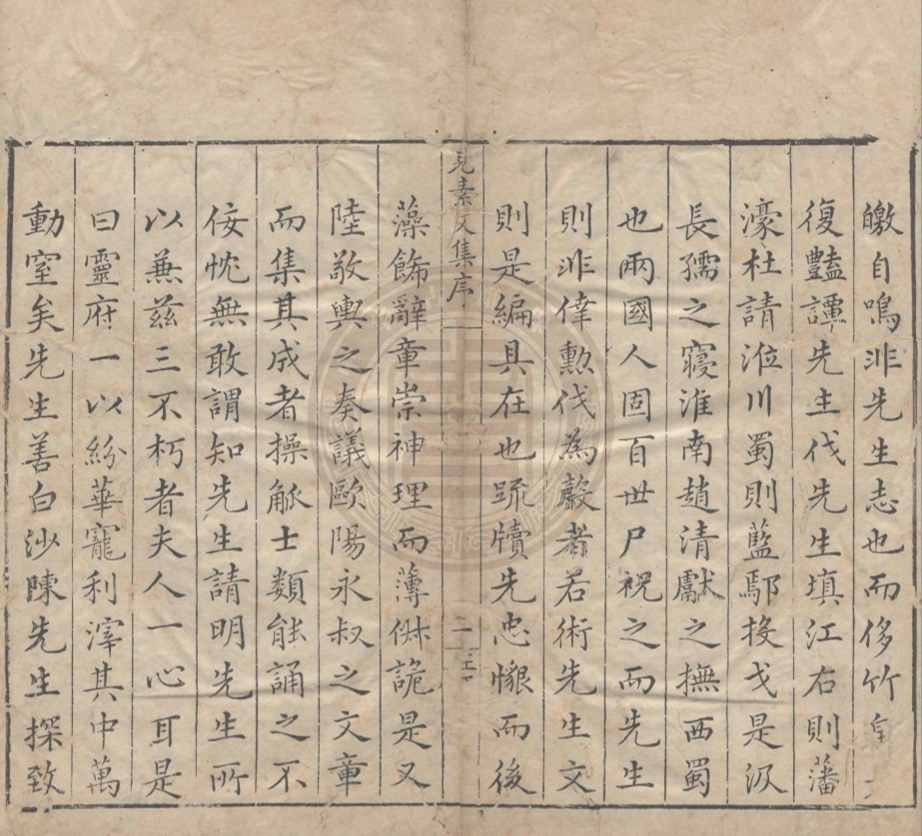 皦自鳴非先生志也而侈竹帛
復豔譚先生伐先生填江右則藩
濠杜請涖川蜀則藍鄢投戈是汲
長孺之寢淮南趙清獻之撫西蜀
也兩國人固百世尸祝之而先生
則非偉勳伐為厳者若術先生文
則是編具在也䟽牘先忠懇而後
見素文集序
二
藻飾辭章崇神理而薄俶詭是又
陸敬輿之奏議歐陽永叔之文章
而集其成者操觚士類能誦之不
佞忱無敢謂知先生請明先生所
以兼茲三不朽者夫人一心耳是
曰靈府一以紛華寵利滓其中萬
動窒矣先生善白沙陳先生探致